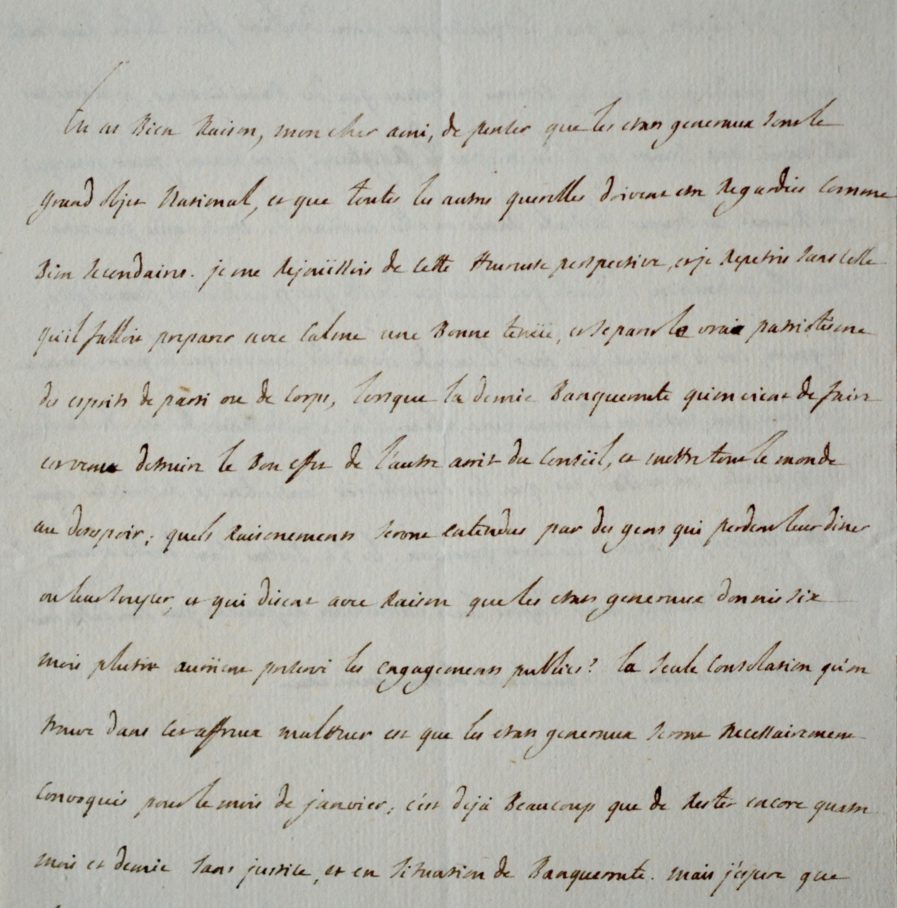 tu as Bien Raison, mon cher ami, de penser que les etats generaux sont le
grand objet National, et que toutes les autres querelles doivent etre Regardées Comme
Bien Secondaires. je me Rejoüissois de Cette Heureuse perspective, et je Repetois sans Cesse
qu'il falloit preparer avec Calme une Bonne tenüe, et separer le vrai patriotisme
des esprits de parti ou de Corps, lorsque la demie Banqueroute qu'on vient de faire
est venue detruire le Bon effet de l'autre arrêt du Conseil, et mettre tout le monde
au desespoir; quels Raisonements seront entendus par des gens qui perdent leur diner
ou leur souper, et qui disent avec Raison que les etats generaux donnés six
mois plutot auroient les engagements publics? la seule Consolation qu'on
trouve dans Cet affreux malheur est que les etats generaux seront Necessairement
Convoqués pour le mois de janvier; c'est dejà Beaucoup que de Rester encore quatre
mois et demie sans justice, et en situation de Banqueroute. mais j'espere que